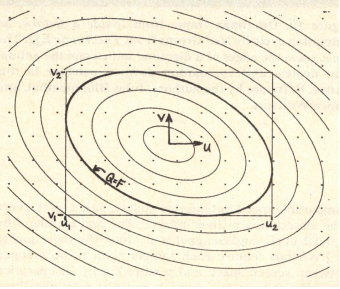 V₂
V
U
Q=F
V₁
U₁
U₂